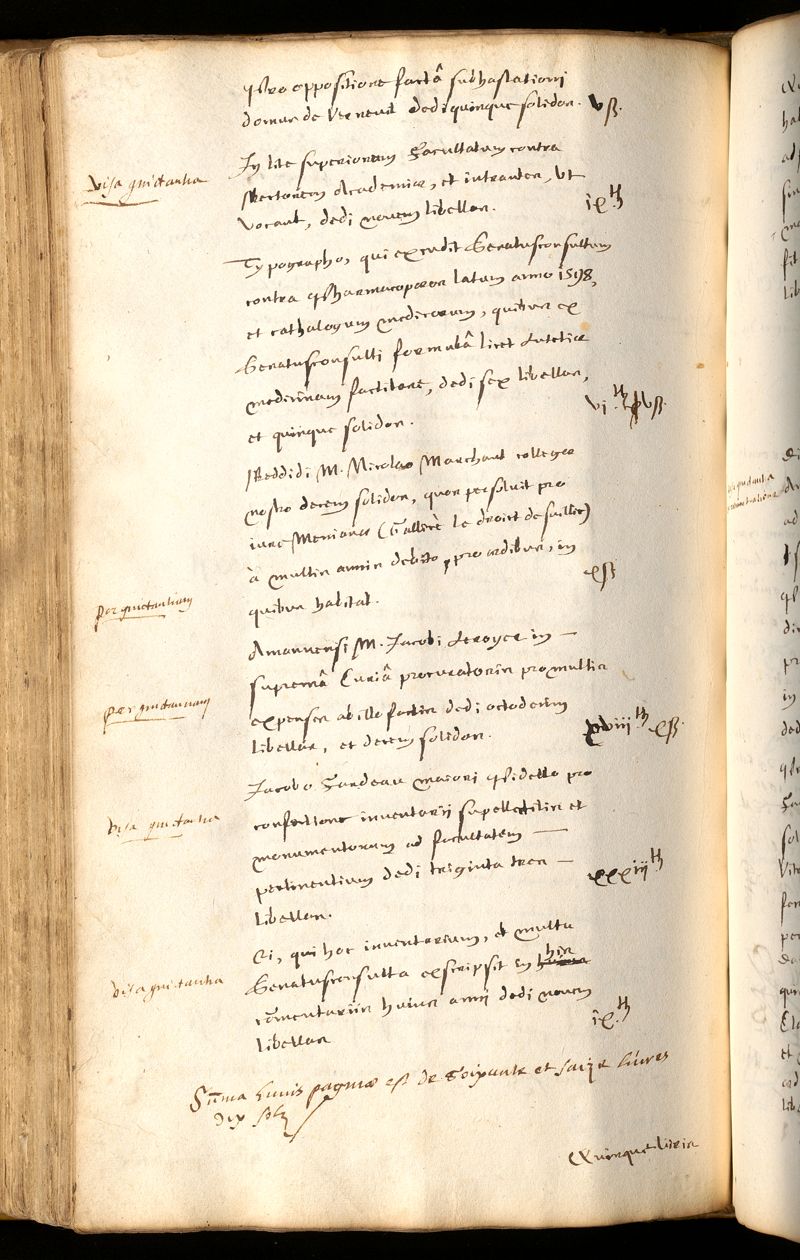 pro oppositione factâ subhastationi
domus de Verneuil dedi quinque solidos. vß.
visa quictantia
In lite superiorum Facultatum contra
Rectorem Academiæ, et intrantes, ut
vocant, dedi novem libellas. ix ℔
Typographo, qui excudit Senatusconsultum
contra Pharmacopæos latum anno 1598,
et cathalogum medicorum, quibus ex
Senatusconsulti formulâ licet Lutetiæ
medicinam factitare, dedi sex libellas,
et quinque solidos. vi ℔ vß.
Reddidi M. Nicolao Marchant collegæ
nostro decem solidos, quos persolvit pro
iure Meniano (Gallicè le droict de saillie)
à multis annis debito, pro ædibus, in
quibus habitat. xß
per quictantiam
Amanuensi M. Jacobi Leroyer in —
supremâ Curiâ procuratoris pro multis
per quictantiam
expensis ab illo factis dedi octodecim
libellas, et decem solidos. xviii ℔ xß.
Jacobo Fardeau maiori Bidello pro
visa quictantia
confectione inventarii supellectilis et
monumentorum ad facultatem —
pertinentium dedi triginta tres —
libellas. xxxiij ℔
Ei, qui hoc inventarium, et multa
visa quictantia
Senatusconsulta exscripsit in his
cōmentariis huius anni dedi novem
libellas ix. ℔
Sūma huius paginæ est de Soixante et saize livres
dix solz
Quinque libris